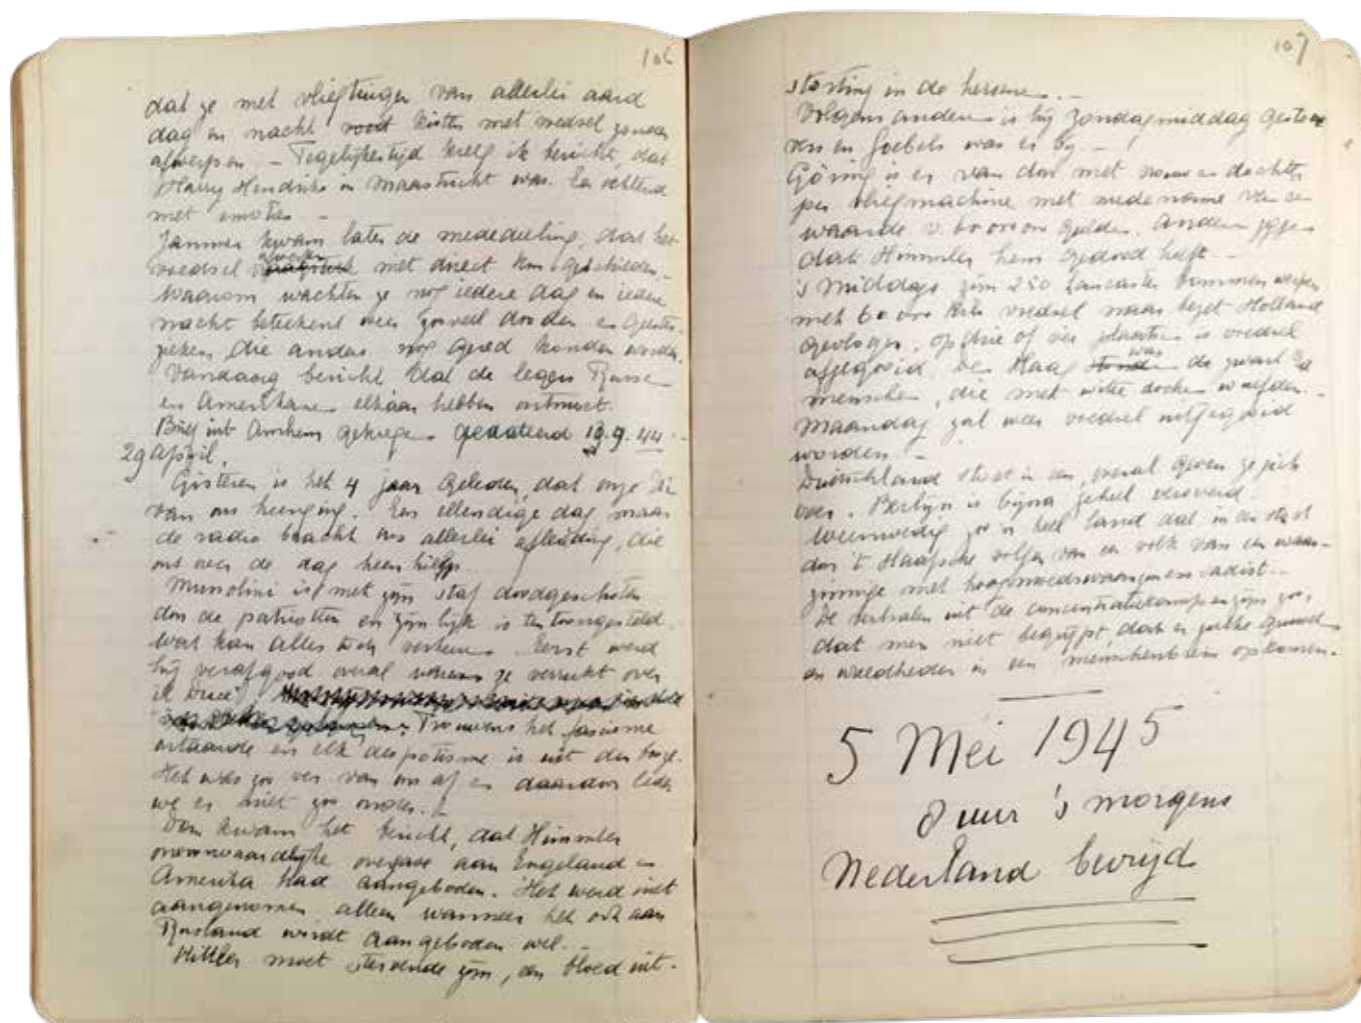 106
dat ze met vliegtuigen van allerlei aard
dag en nacht kisten met voedsel zouden
afwerpen. – Tegelijkertijd kreeg ik bericht, dat
Harry Hendriks in Maastricht was. Een ochtend
met emoties. –
Jammer kwam later de mededeeling, dat het
voedsel afwerpen niet direct kon geschieden. –
Waarom wachten ze nog iedere dag en iedere
nacht beteekent weer zooveel dooden en
zieken, die anders nog gered konden worden.
Vandaag bericht dat de legers Russen
en Amerikanen elkaar hebben ontmoet.
Brief uit Arnhem gekregen gedateerd 19.9.44. –
29 April.
Gisteren is het 4 jaar geleden, dat onze
van ons heenging. Een ellendige dag, maar
de radio bracht ons allerlei afleiding, die
ons over de dag heen hielp.
Mussolini is met zijn staf doodgeschoten
door de patriotten en zijn lijk is tentoongesteld.
Wat kan alles toch verkeeren. Eerst werd
hij verafgood overal waren ze verrukt over
Trouwens het fascisme
ontaarde en elk despotisme is uit den booze.
Het was zoo ver van ons af en daardoor leden
we er niet zoo onder. –
Dan kwam het bericht, dat Himmler
onvoorwaardelijke overgave aan Engeland en
Amerika had aangeboden. Het werd niet
aangenomen alleen wanneer het ook aan
Rusland wordt aangeboden wel. –
Hitler moet stervende zijn, een bloeduit-
107
storting in de hersenen. –
Volgens anderen is hij Zondagmiddag gestor
ven en Goebels was er bij. –
Göring is er van door met vrouw en dochter
per vliegmachine met medename van een
waarde v. gulden. Anderen zeggen
dat Himmler hem gedood heeft. –
's Middags zijn 250 Lancaster bommenwerpers
met 60 000 kilo voedsel naar bezet Holland
gevlogen. Op drie of vier plaatsen is voedsel
afgegooid. Den Haag was de zwart
menschen, die met witte doeken wuifden. –
Maandag zal weer voedsel uitgegooid
worden. –
Duitschland stort in een, overal geven ze zich
over. Berlijn is bijna geheel veroverd.
Weemoedig zoo'n heel land dat in een stort
door 't slaafsche volgen van een volk van een waan-
zinnige met hoogmoedswaanzin en sadist. –
De verhalen uit de concentratiekampen zijn zoo,
dat men niet begrijpt dat er zulke
en wreedheden in een menschenbrein opkomen.
5 Mei 1945
8 uur 's morgens
Nederland bevrijd